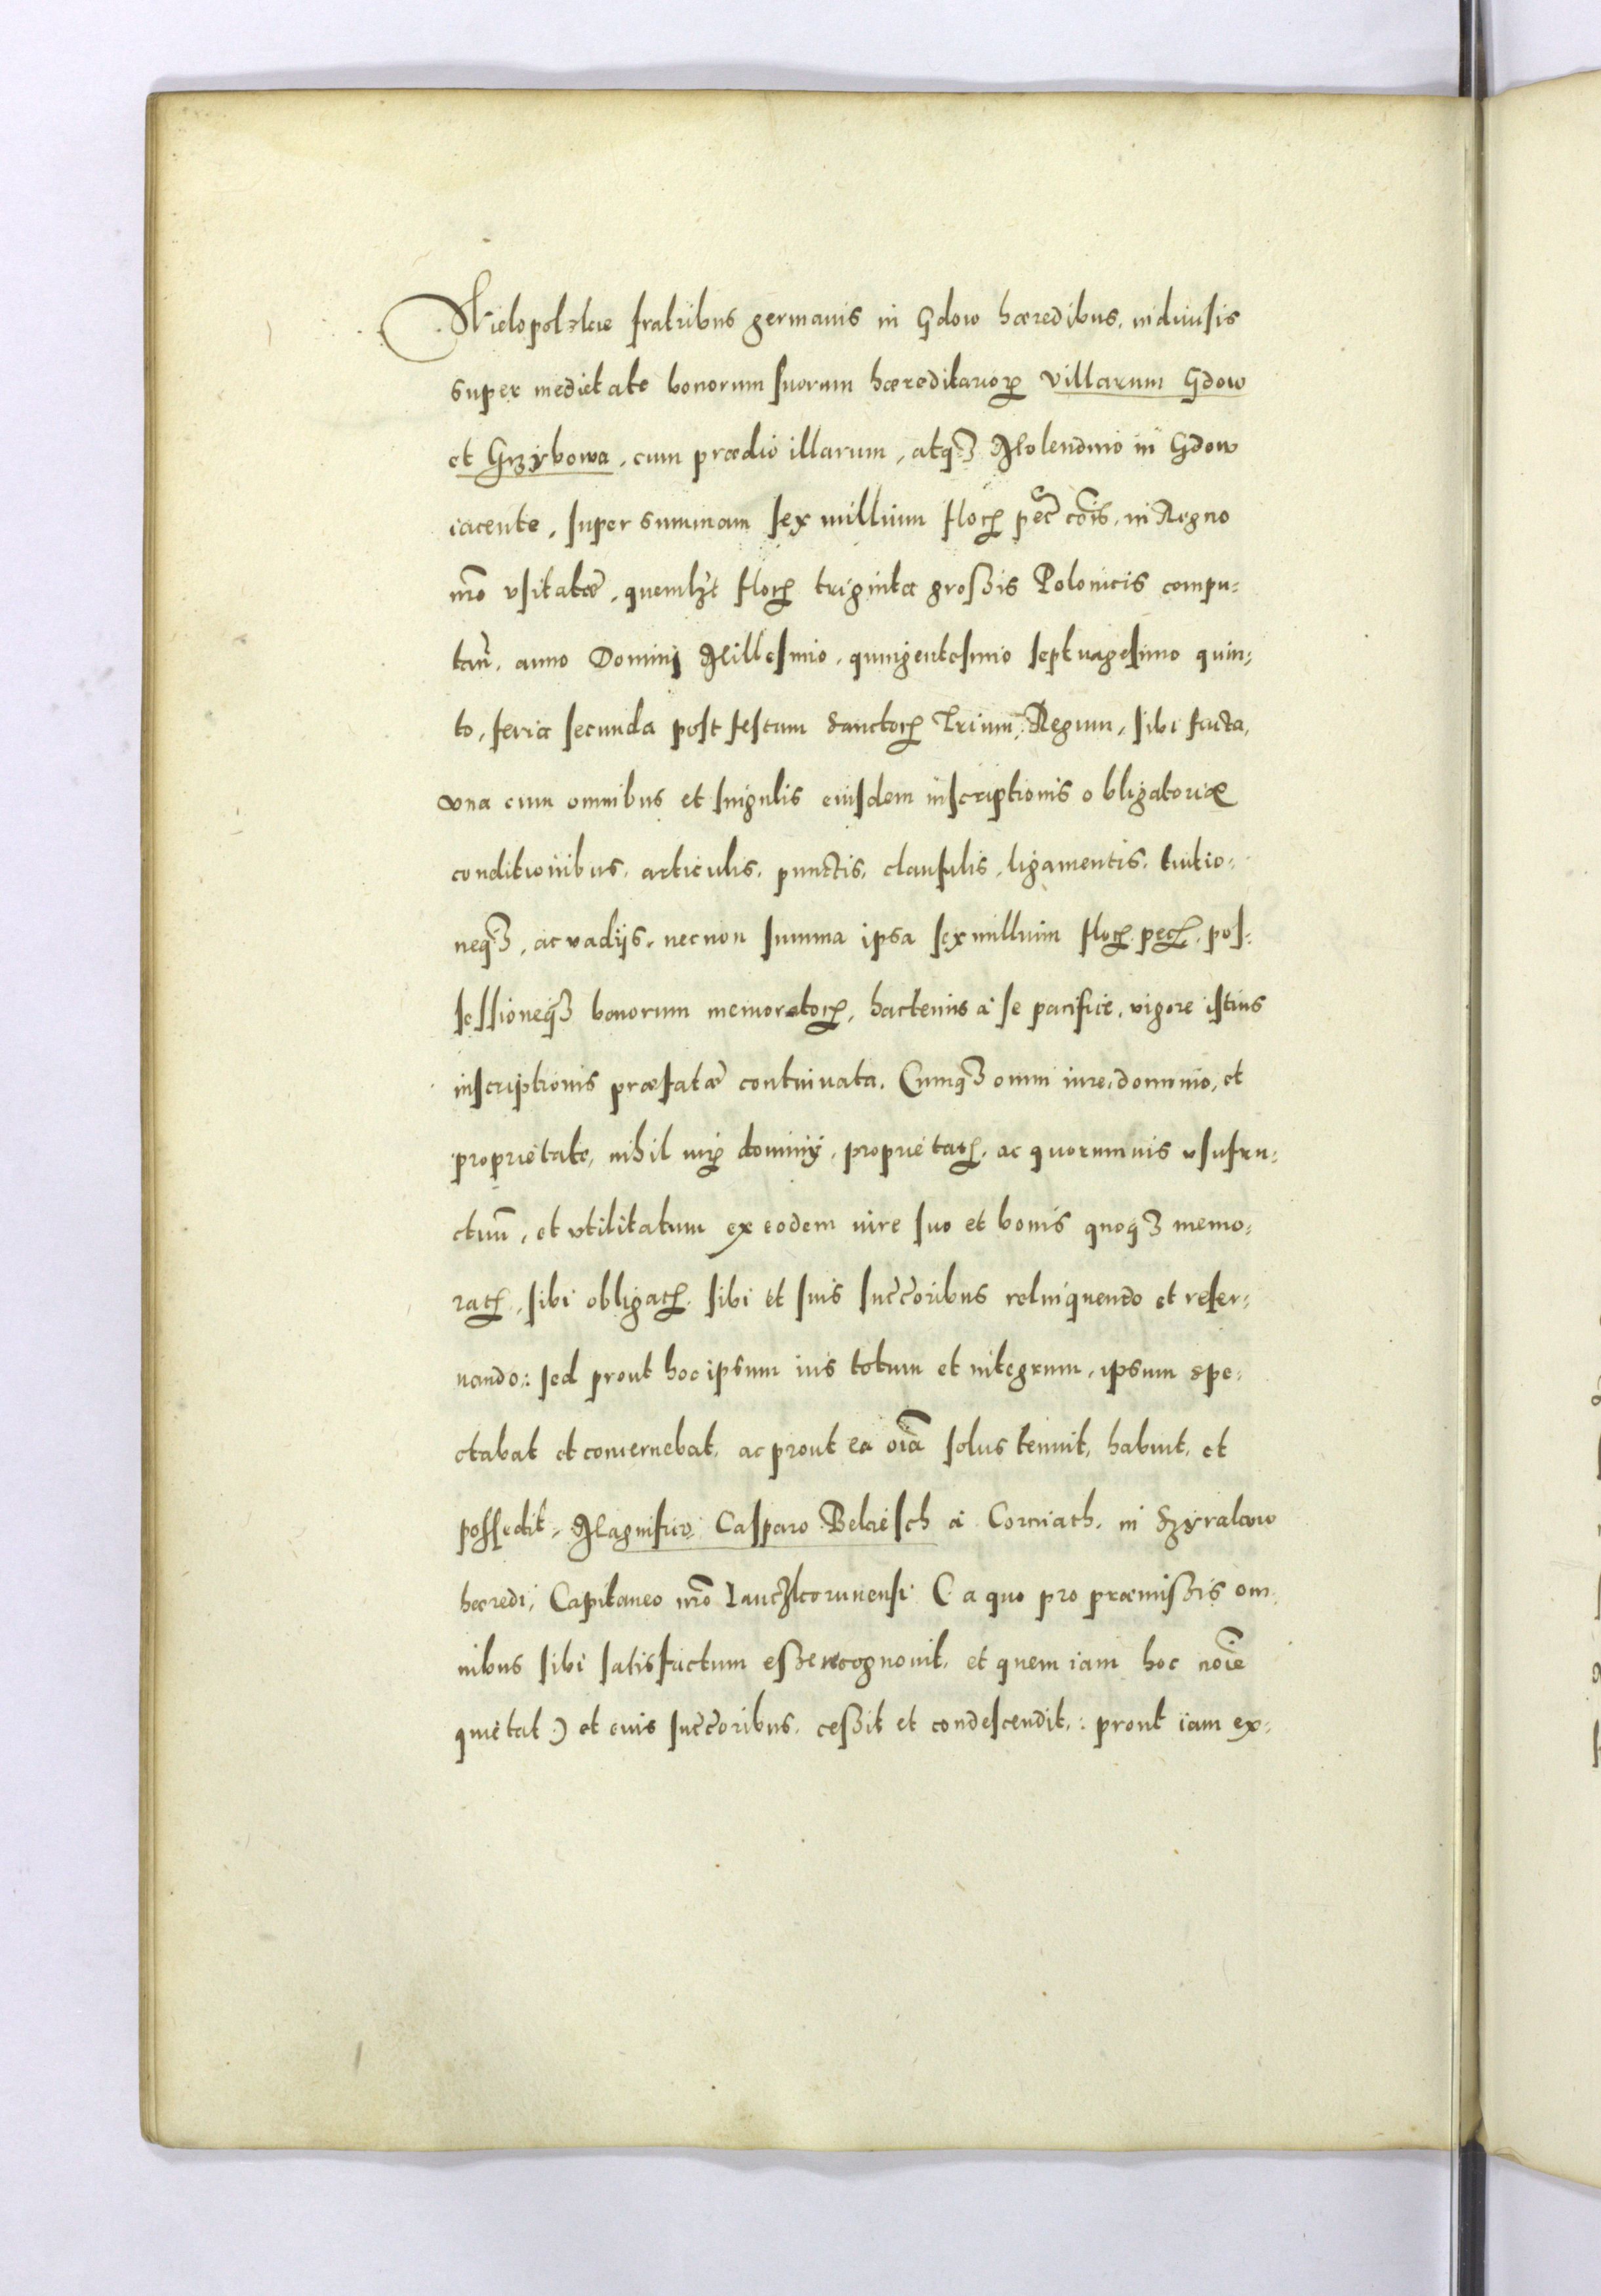 Wielopolskie fratribus germanis in Gdow hæredibus, indiuisis
super medietate bonorum suorum hæreditarioꝝ villarum Gdow
et Grzybowa, cum prædio illarum, atqꝫ Molendino in Gdow
iacente, super summam sex millium floꝝ pec̃ cõis, in Regno
nr̃o vsitatæ, quemlꝫt floꝝ triginta großis Polonicis compu⸗
tan̄, anno Dominj Millesimo, quingentesimo septuagesimo quin⸗
to, feria secunda post festum Sanctoꝝ Trium Regum, sibi facta,
vna cum omnibus et singulis eiusdem inscriptionis obligatoriæ
conditionibus, articulis, punctis, clausulis, ligamentis, euictio⸗
neqꝫ, ac vadijs, necnon summa ipsa sex millium floꝝ peꝝ, pos⸗
sessioneqꝫ bonorum memoratoꝝ, hactenus à se pacifice, vigore istius
inscriptionis præfatæ continuata, Cumqꝫ omni iure, dominio, et
proprietate, nihil iuꝝ dominij, proprietatꝭ, ac quorumuis vsufru⸗
ctuũ, et vtilitatum ex eodem iure suo et bonis quoqꝫ memo⸗
ratꝭ, sibi obligatꝭ, sibi et suis succ̃oribus relinquendo et reser⸗
uando: sed prout hoc ipsum ius totum et integrum, ipsum spe⸗
ctabat et concernebat, ac prout ea oĩa solus tenuit, habuit, et
possedit, Magnifico Casparo Bekiesch à Corniath, in Szyralow
hæredi, Capitaneo nr̃o Lanczkorunensi (a quo pro præmißis om⸗
nibus sibi satisfactum eße recognouit, et quem iam hoc noĩe
quietat) et euis succ̃oribus, ceßit et condescendit,: prout iam ex⸗